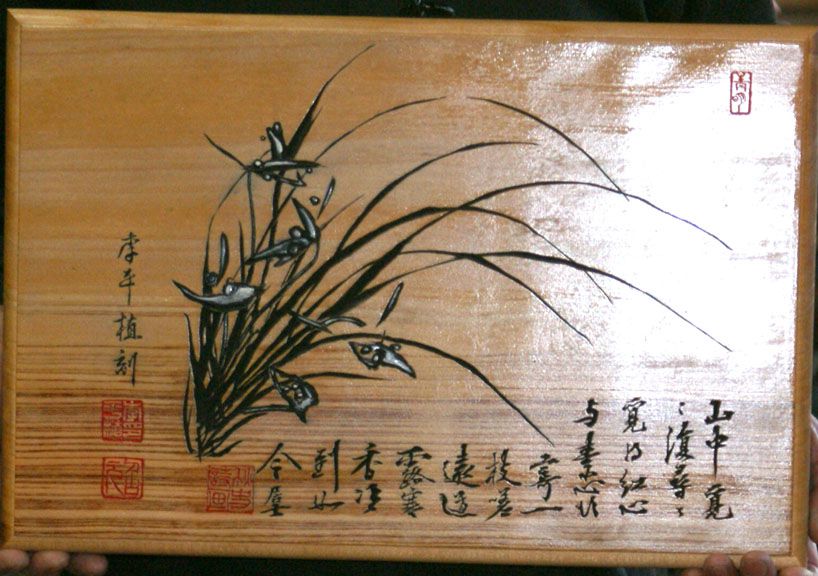 山中覓
〻復尋〻
覓得紅心
与素心欲
寄一
枝嗟
遠道
露寒
香冷
到如
今
李平植刻